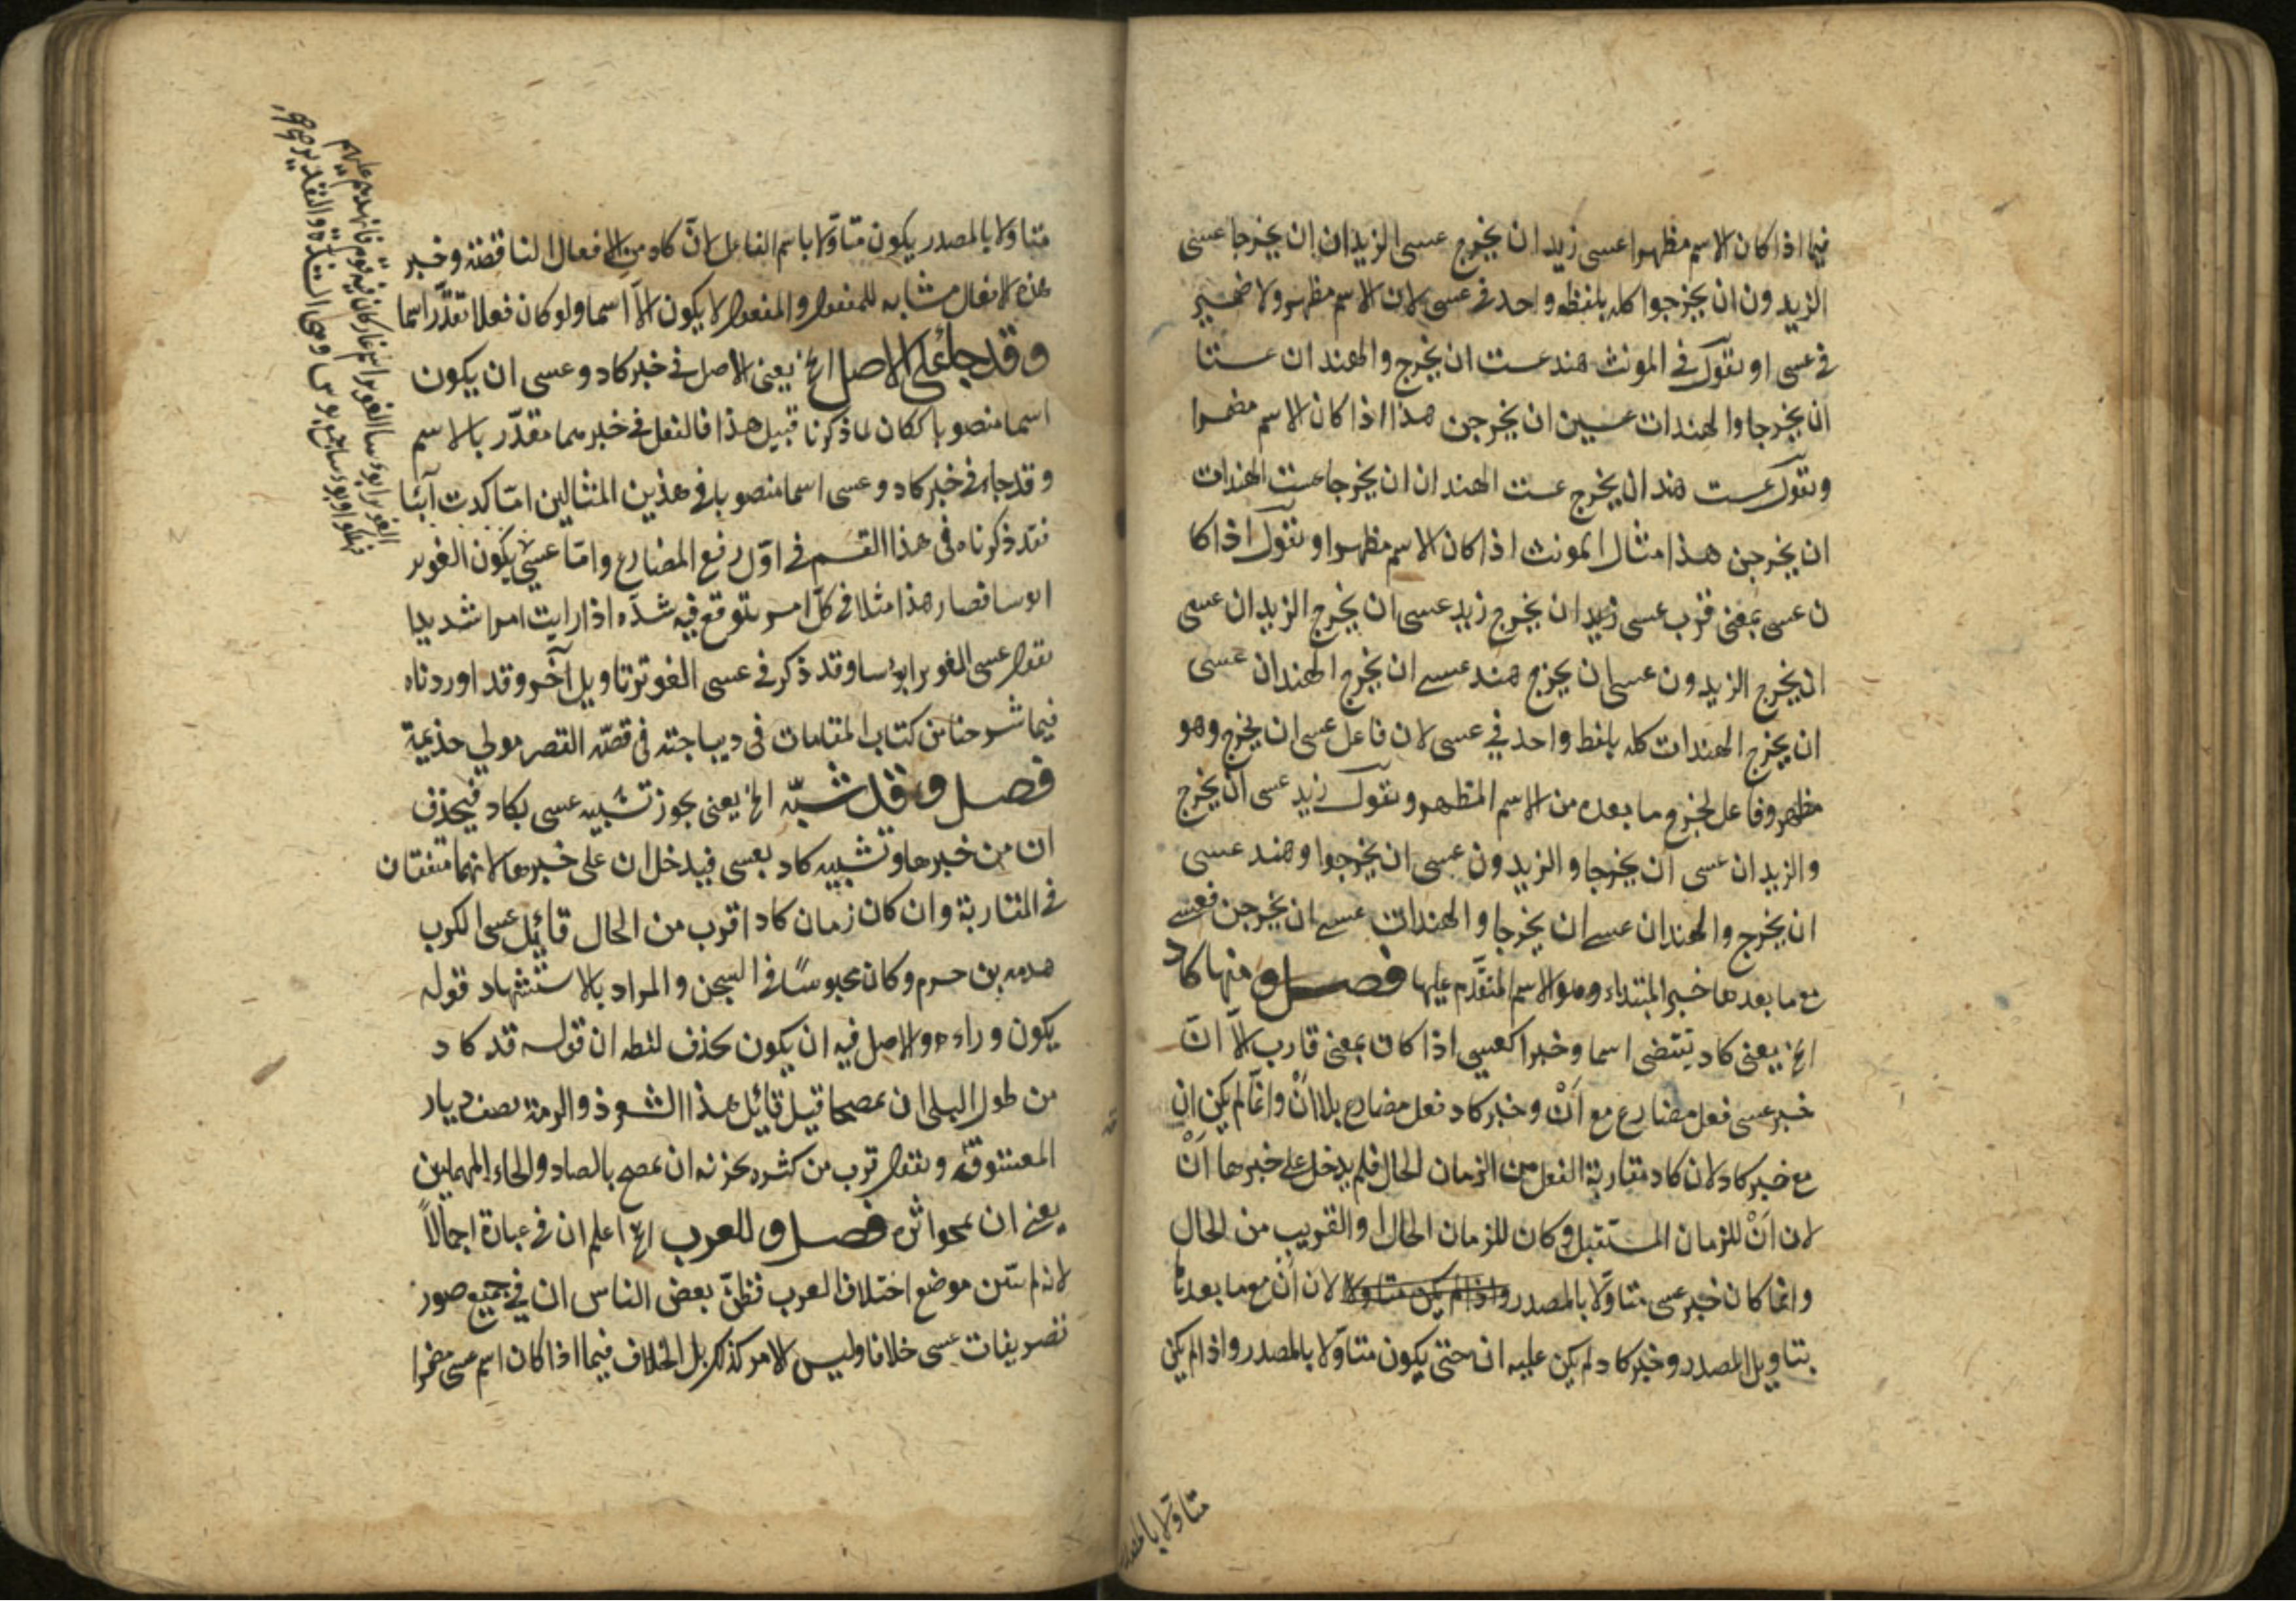 فيما اذا كان الاسم مظهرا عسى زيد ان يخرج عسى الزيدان ان يخرجا عسى
الزيدون ان يخرجوا كله بلفظه واحد في عسى لان الاسم مظهر ولا ضمير
في عسى او تقول في المونث هند عست ان يخرج والهندان عستا
ان يخرجا والهندات عسين ان يخرجن هذا اذا كان الاسم مضمرا
وتقول عست هند ان يخرج عست الهندان ان يخرجا عست الهندات
ان يخرجن هذا مثال المونث اذا كان الاسم مظهرا وتقول اذا كا
ن عسى بمعنى قرب عسى زيد ان يخرج زيد عسى ان يخرج الزيدان عسى
ان يخرج الزيدون عسى ان يخرج هند عسى ان يخرج الهندان عسى
ان يخرج الهندات كله بلفظ واحد في عسى لان فاعل عسى ان يخرج وهو
مظهر وفاعل يخرج ما بعده من الاسم المظهر وتقول زيد عسى ان يخرج
والزيدان عسى ان يخرجا والزيدون عسى ان يخرجوا وهند عسى
ان يخرج والهندان عسى ان يخرجا والهندات عسى ان يخرجن فعسى
مع ما بعدها خبر المبتداء وهو الاسم المتقدم عليها فصل ومنها كاد
الخ يعنى كاد يقتضى اسما وخبرا كعسى اذا كان بمعنى قارب الاّ انّ
خبر عسى فعل مضارع مع اَنْ وخبر كاد فعل مضارع بلا اَنْ وانما لم يكن ان
مع خبر كاد لان كاد مقاربة الفعل من الزمان الحال فلم يدخل على خبرها اَنْ
لان اَنْ للزمان المستقبل وكان للزمان الحال والقريب من الحال
وانما كان خبر عسى متاوّلا بالمصدر واذا لم يكن متاولا لان اَنْ مع ما بعدها
بتاويل المصدر وخبر كاد لم يكن عليه ان حتى يكون متاوّلا بالمصدر واذا لم يكن
متاوّلا بالمصدر
متاوّلا بالمصدر يكون متاوّلا باسم الفاعل لانّ كاد من الافعال الناقصة وخبر
هذه الافعال مشابه للمفعول والمفعول لا يكون الاّ اسما ولو كان فعلا تقدّر اسما
وقد جاء على الاصل الخ يعنى الاصل في خبر كاد وعسى ان يكون
اسما منصوبا ككان لما ذكرنا قبيل هذا فالفعل في خبرهما مقدّر بالاسم
وقد جاء في خبر كاد وعسى اسما منصوبا في هذين المثالين امّا كدت آئبا
فقد ذكرناه في هذا القسم في اوّل رفع المضارع وامّا عسى يكون الغوير
ابوسا فصار هذا مثلا في كلّ امر يتوقع فيه شدّه اذا رايت امرا شديدا
تقول عسى الغوير ابوسا وقد ذكر في عسى الغوير تاويل آخر وقد اوردناه
فيما شرحنا من كتاب المقامات في ديباجته في قصّه القصر مولي جذيمة
فصل وقد شبّه الخ يعنى يجوز تشبيه عسى بكاد فيحذف
ان من خبرها وتشبيه كاد بعسى فيدخل ان على خبرها لانهما متفقتان
في المقاربة وان كان زمان كاد اقرب من الحال قائل عسى الكرب
هدبه بن حرم وكان محبوسًا في السجن والمراد بالاستشهاد قوله
يكون وراءه والاصل فيه ان يكون بحذف لفظه ان قوله قد كاد
من طول البلى ان يمصحا قيل قائل هذا الشعر ذو الرمة يصف ديار
المعشوقة ويقول قرب من كثره حزنه ان يمصح بالصاد والحاء المهملين
يعنى ان يمحو اثره فصل وللعرب الخ اعلم ان في عبارة اجمالاً
لانه لم يبين موضع اختلاف العرب فظنّ بعض الناس ان في جميع صور
تصريفات عسى خلافا وليس الامر كذلك بل الخلاف فيما اذا كان اسم عسى مضمرا
الغوير ابوسا الغوير اسم غار كان فيه قوم فانهدم عليهم
فهلكوا وابوسا جمع بوس وهي الشدّة والتقدير